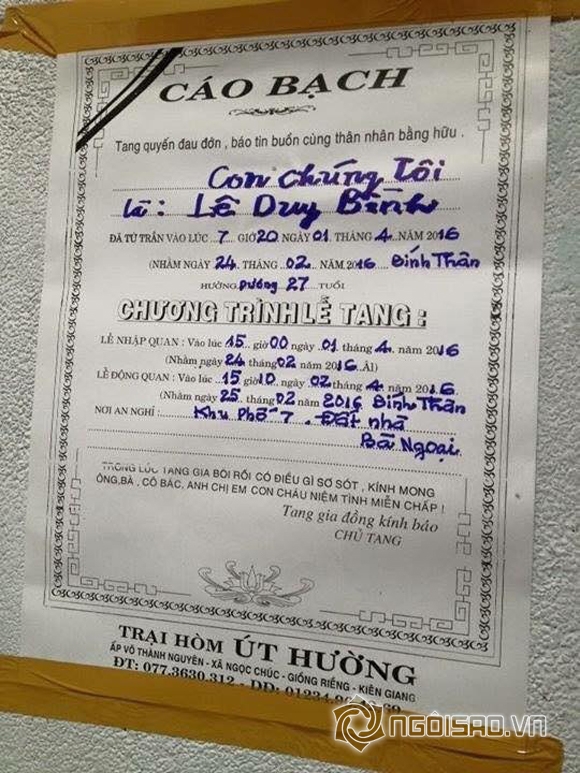 CÁO BẠCH
Tang quyến đau đớn , báo tin buồn cùng thân nhân bằng hữu .
Con chúng Tôi
là : Lê Duy Bình
ĐÃ TỪ TRẦN VÀO LÚC 7 GIỜ 20 NGÀY 01 THÁNG 4 NĂM 2016
(NHẰM NGÀY 24 THÁNG 02 NĂM 2016 Bính Thân
HƯỞNG Dương 27 TUỔI
CHƯƠNG TRÌNH LỄ TANG :
LỄ NHẬP QUAN : Vào lúc 15 giờ 00 ngày 01 tháng 4 năm 2016
(Nhằm ngày 24 tháng 02 năm 2016 ÂL)
LỄ ĐỘNG QUAN : Vào lúc 15 giờ 10 ngày 02 tháng 4 năm 2016
(Nhằm ngày 25 tháng 02 năm 2016 Bính Thân
NƠI AN NGHỈ : Khu Phố 7 . Đất nhà
Bà Ngoại
TRONG LÚC TANG GIA BỐI RỐI CÓ ĐIỀU GÌ SƠ SÓT , KÍNH MONG
ÔNG,BÀ , CÔ BÁC, ANH CHỊ EM CON CHÁU NIỆM TÌNH MIỄN CHẤP !
Tang gia đồng kính báo
CHỦ TANG
TRẠI HÒM ÚT HƯỜNG
ẤP VÕ THÀNH NGUYÊN - XÃ NGỌC CHÚC - GIỒNG RIỀNG - KIÊN GIANG
ĐT: 077.3630.312 - DĐ: 01234.
NGÔISAO.VN